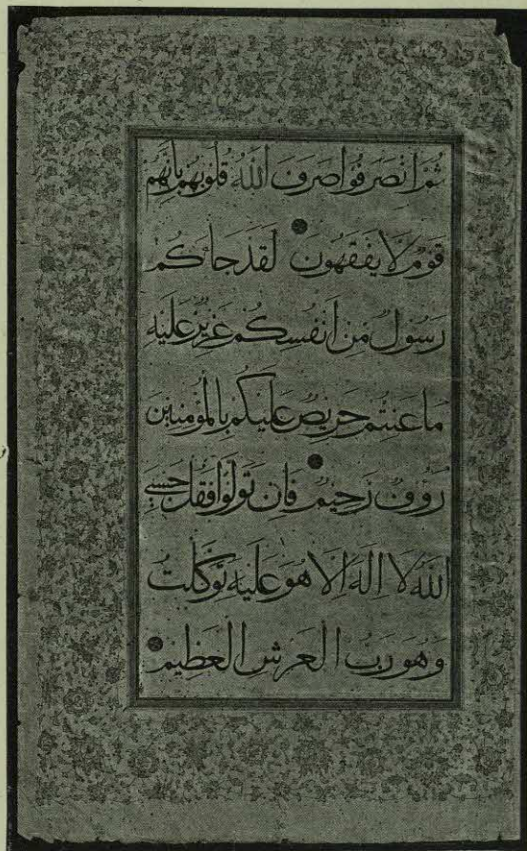 ثُمَّ انْصَرَفُوا صَرَفَ اللهُ قُلُوبَهُمْ بِاَنَّهُمْ
قَوْمٌ لَا يَفْقَهُونَ لَقَدْ جَاءَكُمْ
رَسُولٌ مِنْ اَنْفُسِكُمْ عَزِيزٌ عَلَيْهِ
مَا عَنِتُّمْ حَرِيصٌ عَلَيْكُمْ بِالْمُؤْمِنِينَ
رَؤُوفٌ رَحِيمٌ فَاِنْ تَوَلَّوْا فَقُلْ حَسْبِيَ
اللهُ لَا اِلَهَ اِلَّا هُوَ عَلَيْهِ تَوَكَّلْتُ
وَهُوَ رَبُّ الْعَرْشِ الْعَظِيمِ